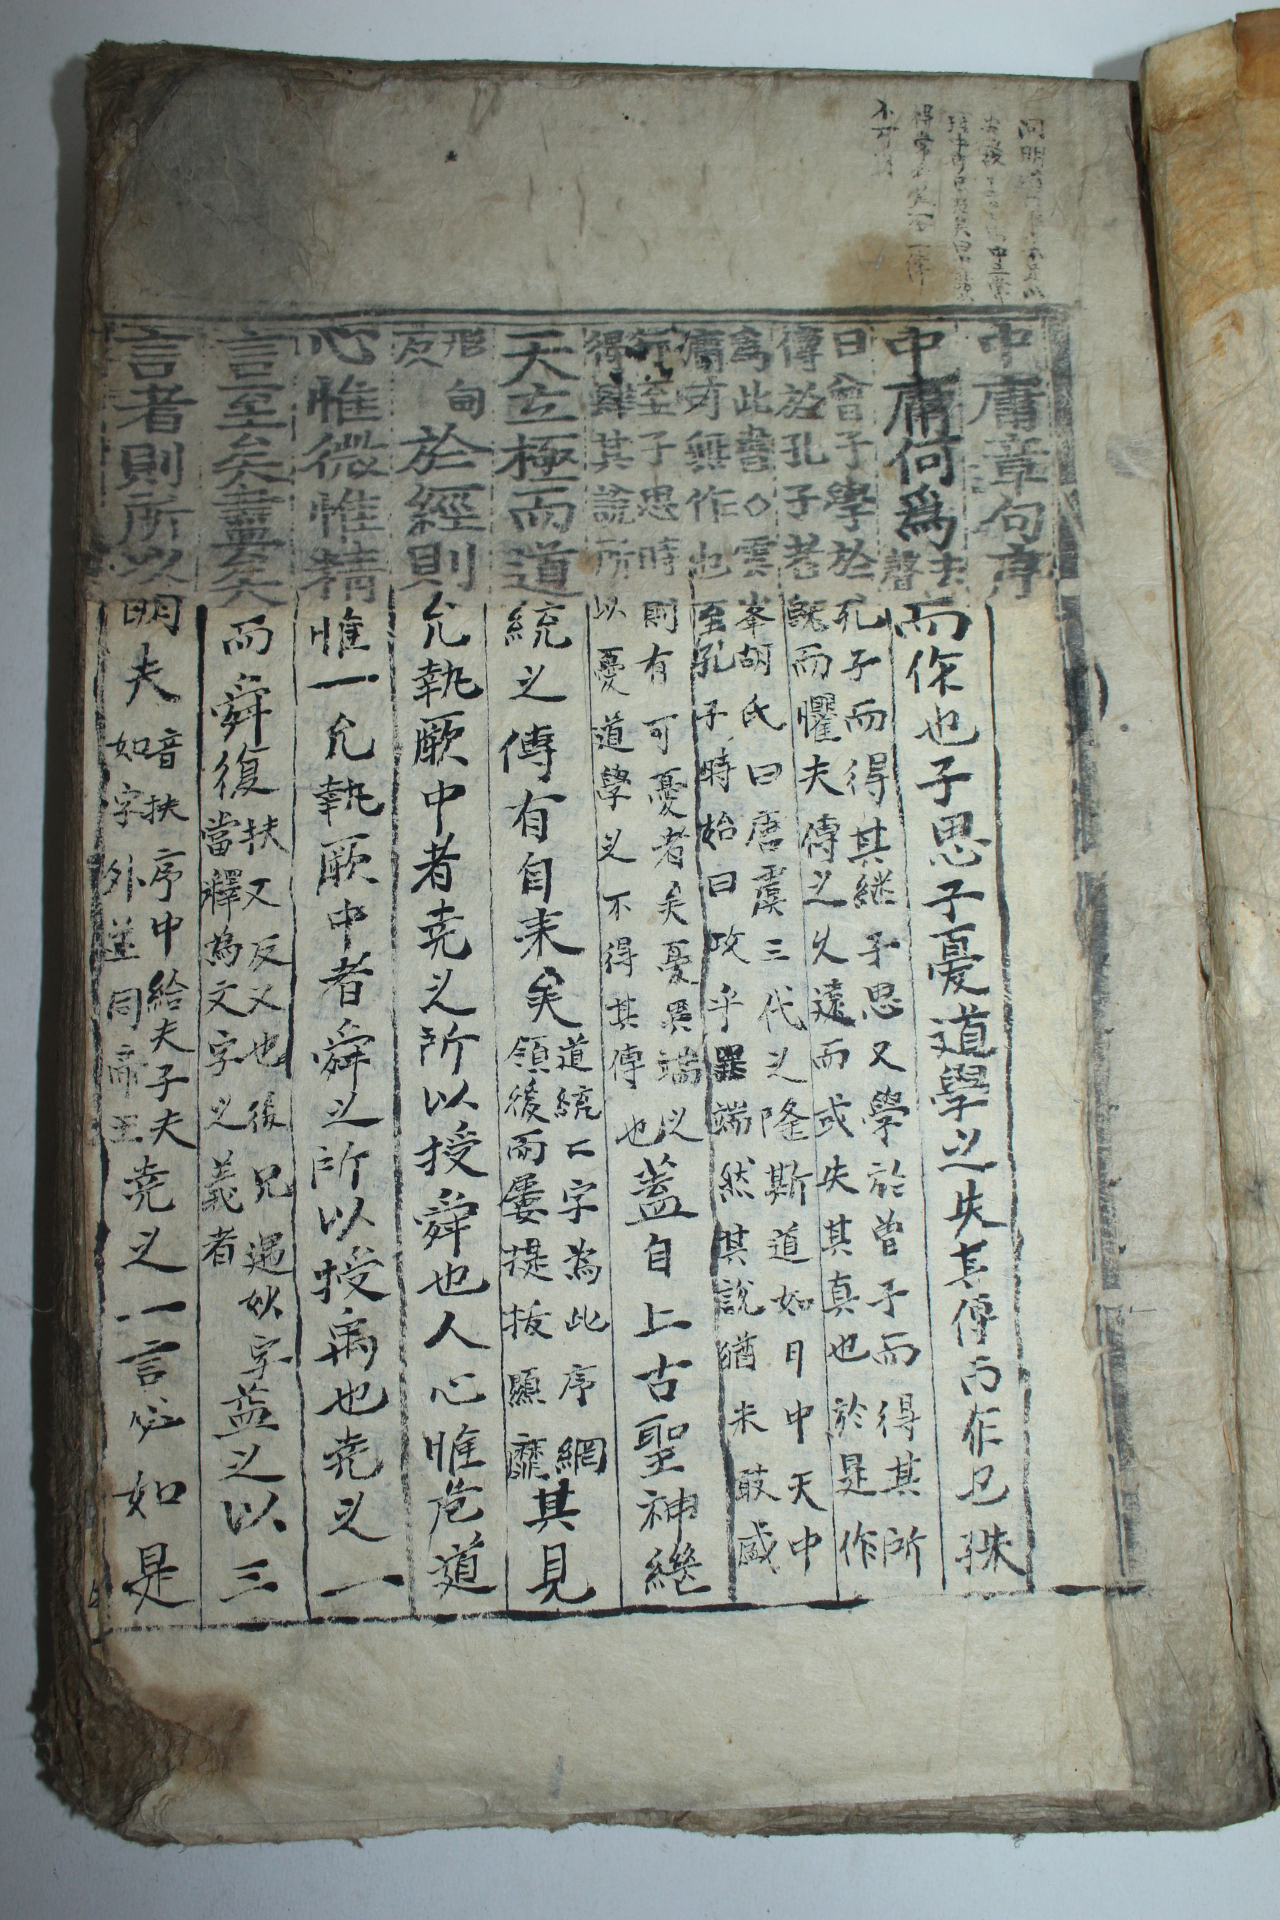 中庸章句序
中庸何爲去聲而作也子思子憂道學之失其傳而作也
曰曾子學於孔子而得其継子思又學於曾子而得其所
傳於孔子者旣而懼夫傳之久遠而或失其真也於是作
爲此書○雲峯胡氏曰唐虞三代之隆斯道如日中天中
庸可無作也至孔子時始曰攻乎異端然其說猶未敢盛
行至子思時則有可憂者矣憂異端以
得肆其說所以憂道學之不得其傳也
蓋自上古聖神繼
天立極而道統之傳有自来矣
道統二字為此序網
領後而屢提掇顯靡
其見
形甸
反
於經則允執厥中者堯之所以授舜也人心惟危道
心惟微惟精惟一允執厥中者舜之所以授禹也堯之一
言至矣盡矣而舜復
扶又反又也後凡遇此字
當釋為文字之義者
益之以三
言者則所以明夫
音扶序中給夫子夫
如字外並同帝王
堯之一言必如是